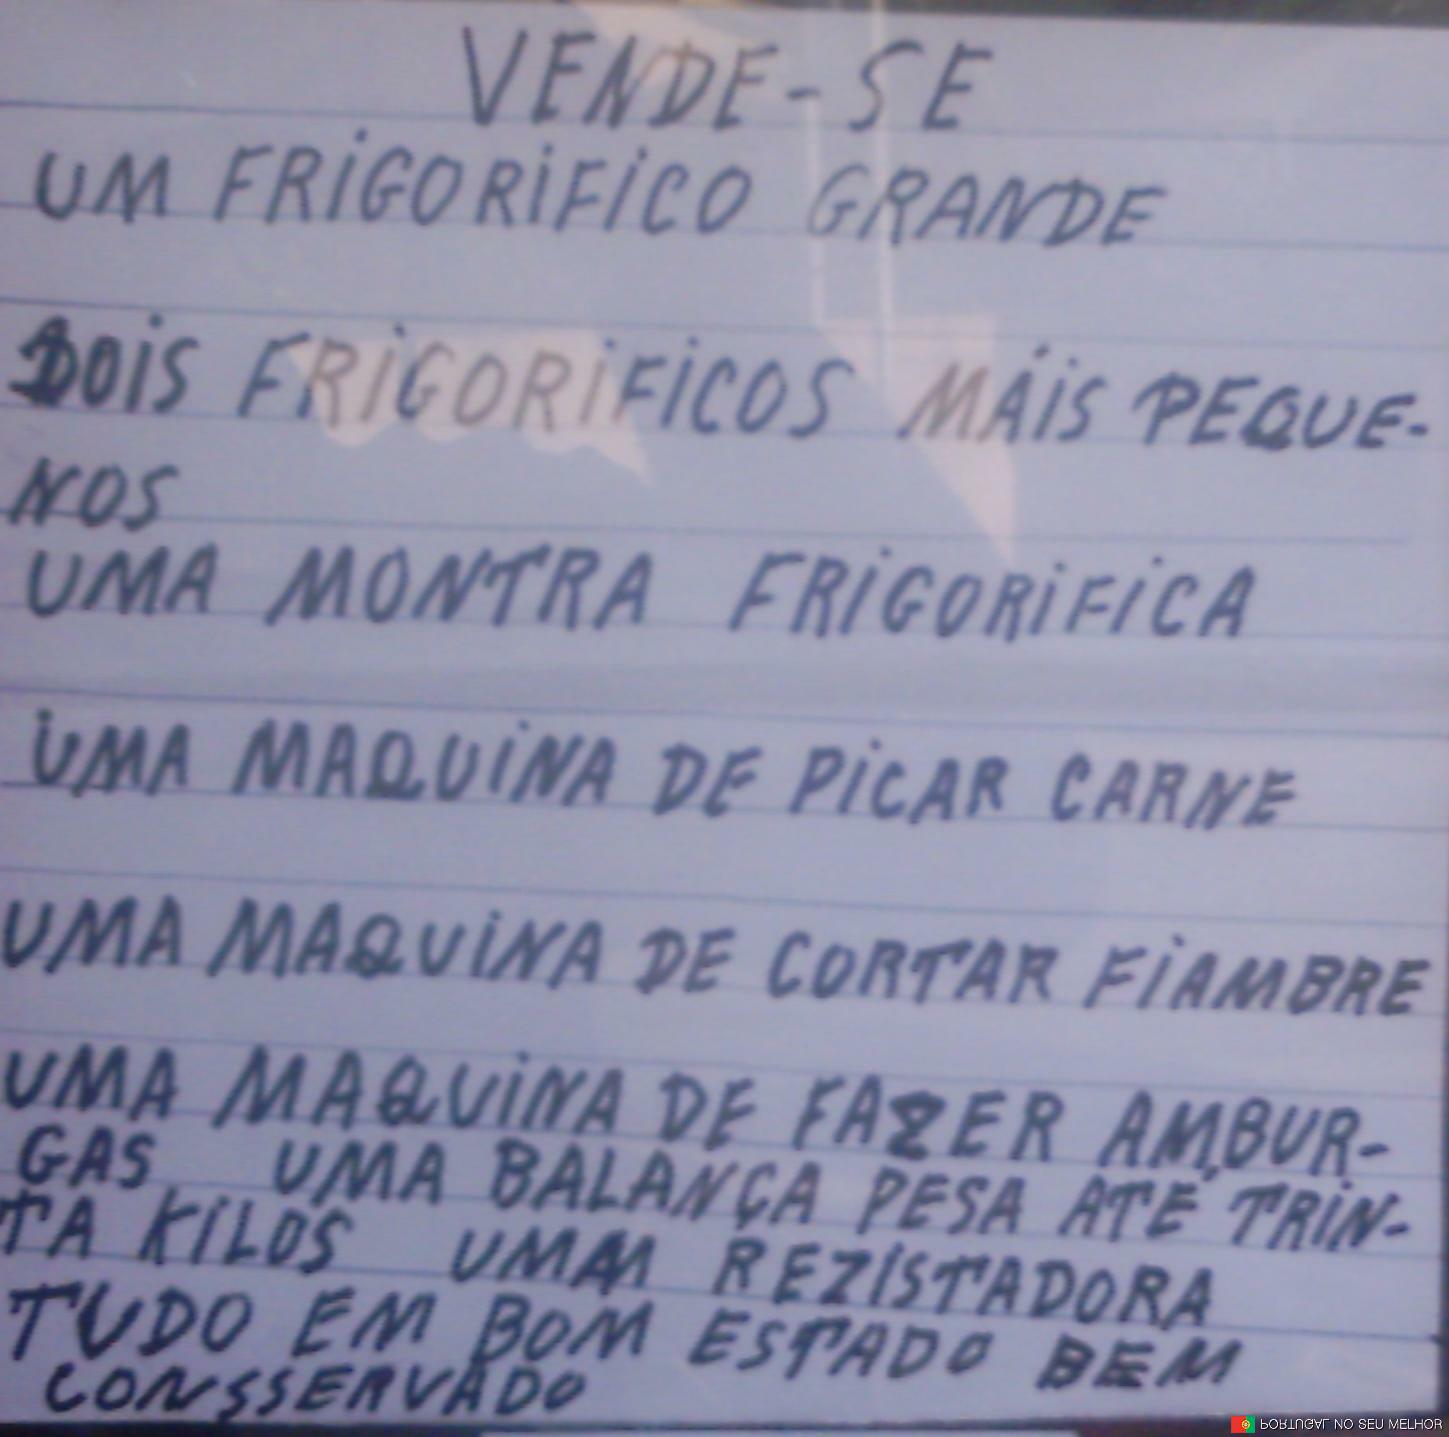 VENDE-SE
UM FRIGORIFICO GRANDE
DOIS FRIGORIFICOS MÁIS PEQUE-
NOS
UMA MONTRA FRIGORIFICA
UMA MAQUINA DE PICAR CARNE
UMA MAQUINA DE CORTAR FIAMBRE
UMA MAQUINA DE FAZER AMBUR-
GAS UMA BALANÇA PESA ATÉ TRIN-
TA KILOS UMA REZISTADORA
TUDO EM BOM ESTADO BEM
CONSSERVADO
PORTUGAL NO SEU MELHOR